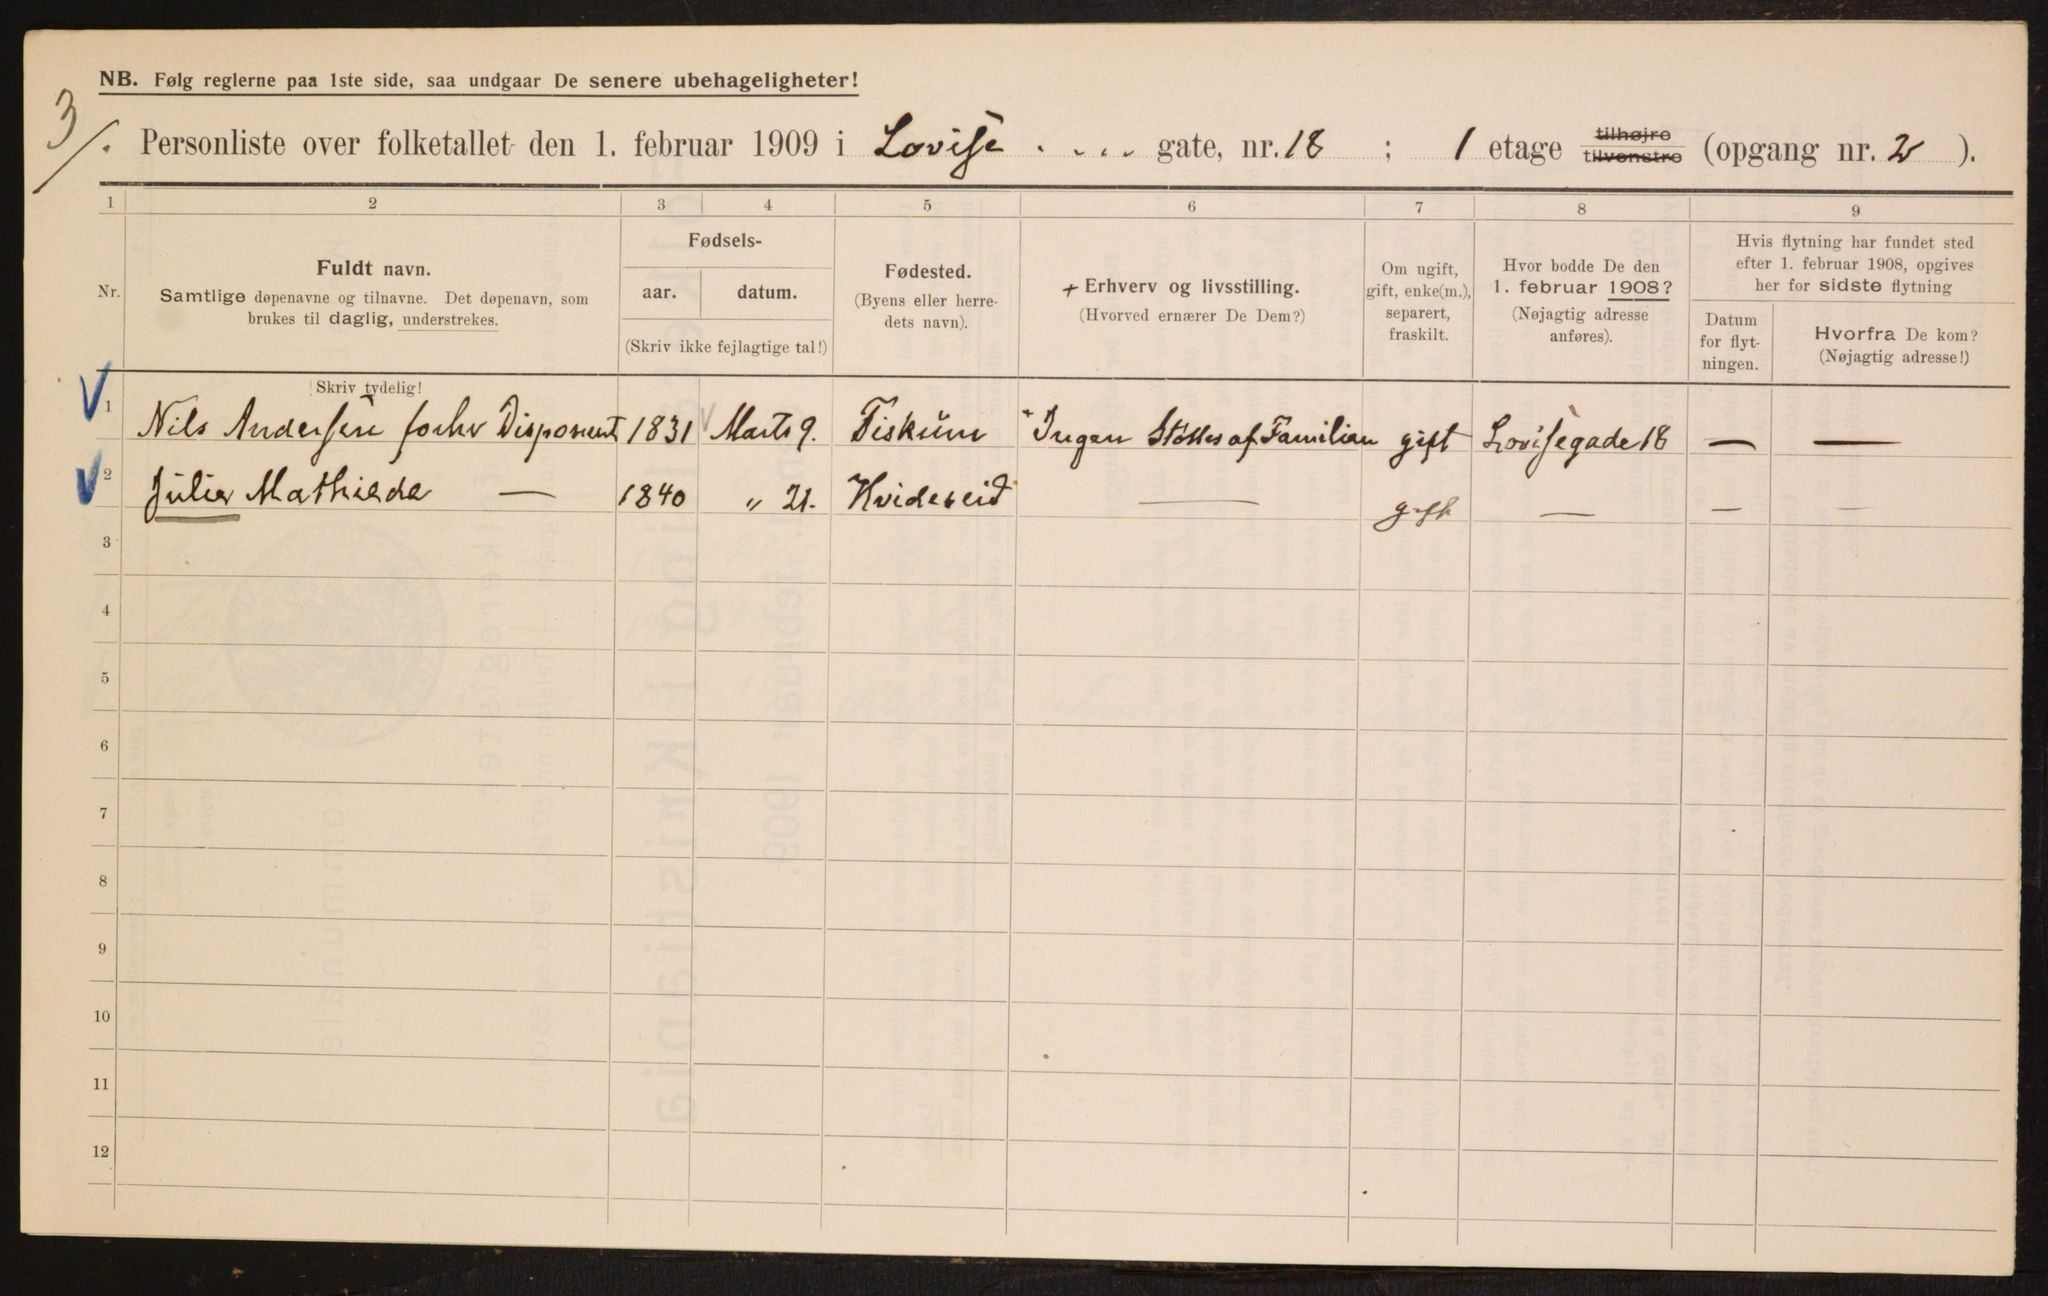 NB. Følg reglerne paa 1ste side, saa undgaar De senere ubehageligheter!
3/.
Personliste over folketallet den 1. februar 1909 i Lovise . . . . gate, nr. 18 ; 1 etage tilhøjre tilvenstre (opgang nr. 2 ).
1 2 3 4 5 6 7 8 9
Nr.
Fuldt navn.
Samtlige døpenavne og tilnavne. Det døpenavn, som
brukes til daglig, understrekes.
Skriv tydelig!
Fødsels-
aar. datum.
(Skriv ikke fejlagtige tal!)
Fødested.
(Byens eller herre-
dets navn).
+ Erhverv og livsstilling.
(Hvorved ernærer De Dem?)
Om ugift,
gift, enke(m.),
separert,
fraskilt.
Hvor bodde De den
1. februar 1908?
(Nøjagtig adresse
anføres).
Hvis flytning har fundet sted
efter 1. februar 1908, opgives
her for sidste flytning
Datum
for flyt-
ningen.
Hvorfra De kom?
(Nøjagtig adresse!)
1 Nils Andersen forhv Disponent 1831 Marts 9. Fiskum + Ingen Stöttes af Familien gift Lovisegade 18 — —
2 Julie Mathilde — 1840 „ 21. Hvideseid — gift — — —
3
4
5
6
7
8
9
10
11
12